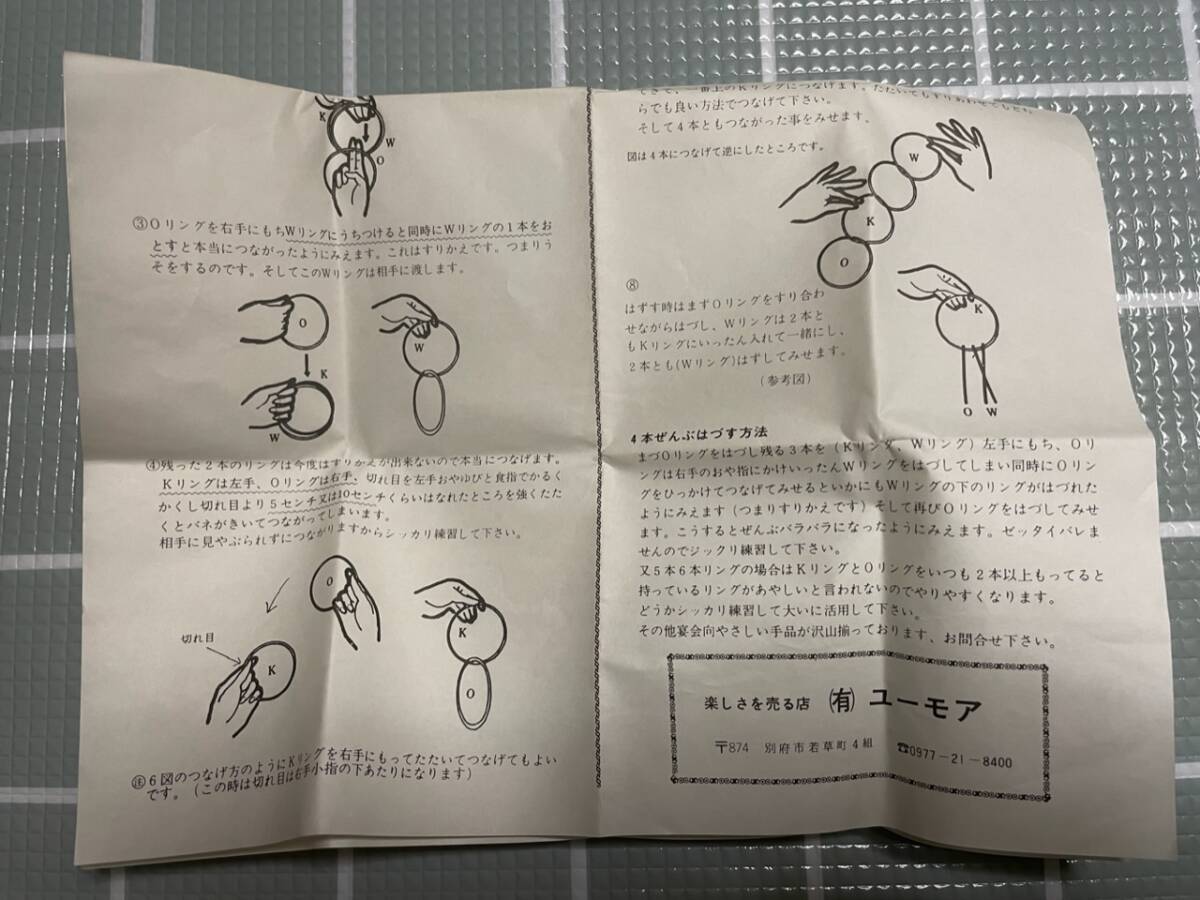 K
W
O
③Oリングを右手にもちWリングにうちつけると同時にWリングの1本をお
とすと本当につながったようにみえます。これはすりかえです。つまりう
そをするのです。そしてこのWリングは相手に渡します。
O
K
W
W
④残った2本のリングは今度はすりかえが出来ないので本当につなげます。
Kリングは左手、Oリングは右手、切れ目を左手おやゆびと食指でかるく
かくし切れ目より5センチ又は10センチくらいはなれたところを強くたた
くとバネがきいてつながってしまいます。
相手に見やぶられずにつながりますからシッカリ練習して下さい。
O
切れ目
K
K
O
注6図のつなげ方のようにKリングを右手にもってたたいてつなげてもよい
です。(この時は切れ目は右手小指の下あたりになります)
一番上のKリングにつなげます。たたいてもすりあわせても
らでも良い方法でつなげて下さい。
そして4本ともつながった事をみせます。
図は4本につなげて逆にしたところです。
W
K
O
⑧
はずす時はまずOリングをすり合わ
せながらはづし、Wリングは2本と
もKリングにいったん入れて一緒にし、
2本とも(Wリング)はずしてみせます。
(参考図)
K
O W
4本ぜんぶはづす方法
まづOリングをはづし残る3本を(Kリング、Wリング)左手にもち、Oリ
ングは右手のおや指にかけいったんWリングをはづしてしまい同時にOリン
グをひっかけてつなげてみせるといかにもWリングの下のリングがはづれた
ようにみえます(つまりすりかえです)そして再びOリングをはづしてみせ
ます。こうするとぜんぶバラバラになったようにみえます。ゼッタイバレま
せんのでジックリ練習して下さい。
又5本6本リングの場合はKリングとOリングをいつも2本以上もってると
持っているリングがあやしいと言われないのでやりやすくなります。
どうかシッカリ練習して大いに活用して下さい。
その他宴会向やさしい手品が沢山揃っております、お問合せ下さい。
楽しさを売る店 (有) ユーモア
〒874 別府市若草町4組 ☎0977-21-8400